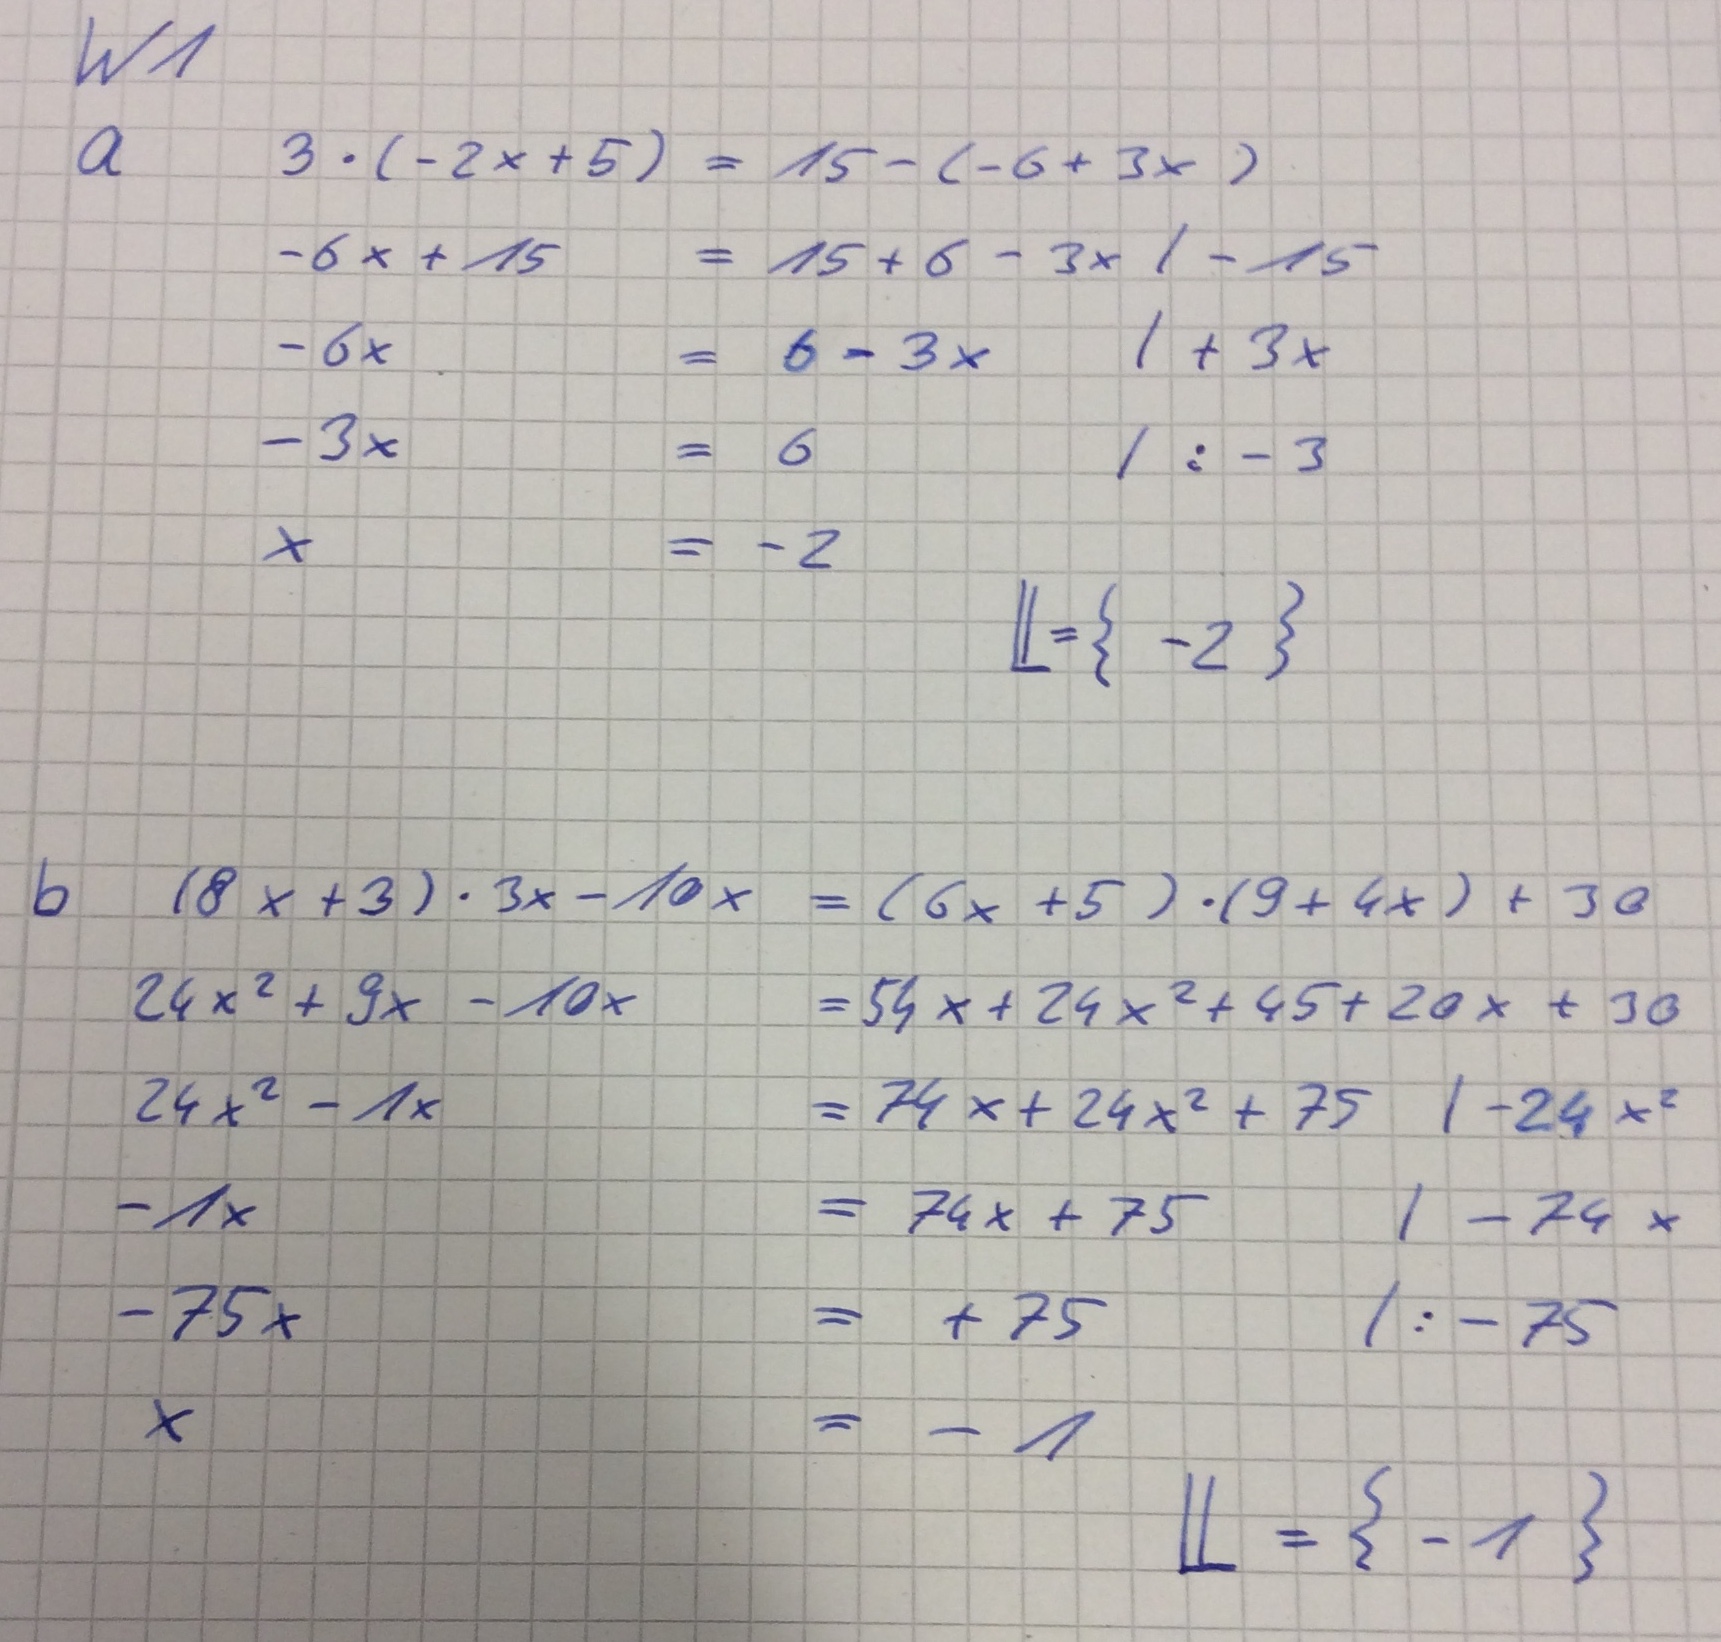 W1
a 3 · (-2x + 5) = 15 - (-6 + 3x)
-6x + 15 = 15 + 6 - 3x | - 15
-6x = 6 - 3x | + 3x
-3x = 6 | : -3
x = -2
𝕃 = { -2 }
b (8x + 3) · 3x - 10x = (6x + 5) · (9 + 4x) + 30
24x² + 9x - 10x = 54x + 24x² + 45 + 20x + 30
24x² - 1x = 74x + 24x² + 75 | -24x²
-1x = 74x + 75 | - 74x
-75x = +75 | : -75
x = -1
𝕃 = { -1 }